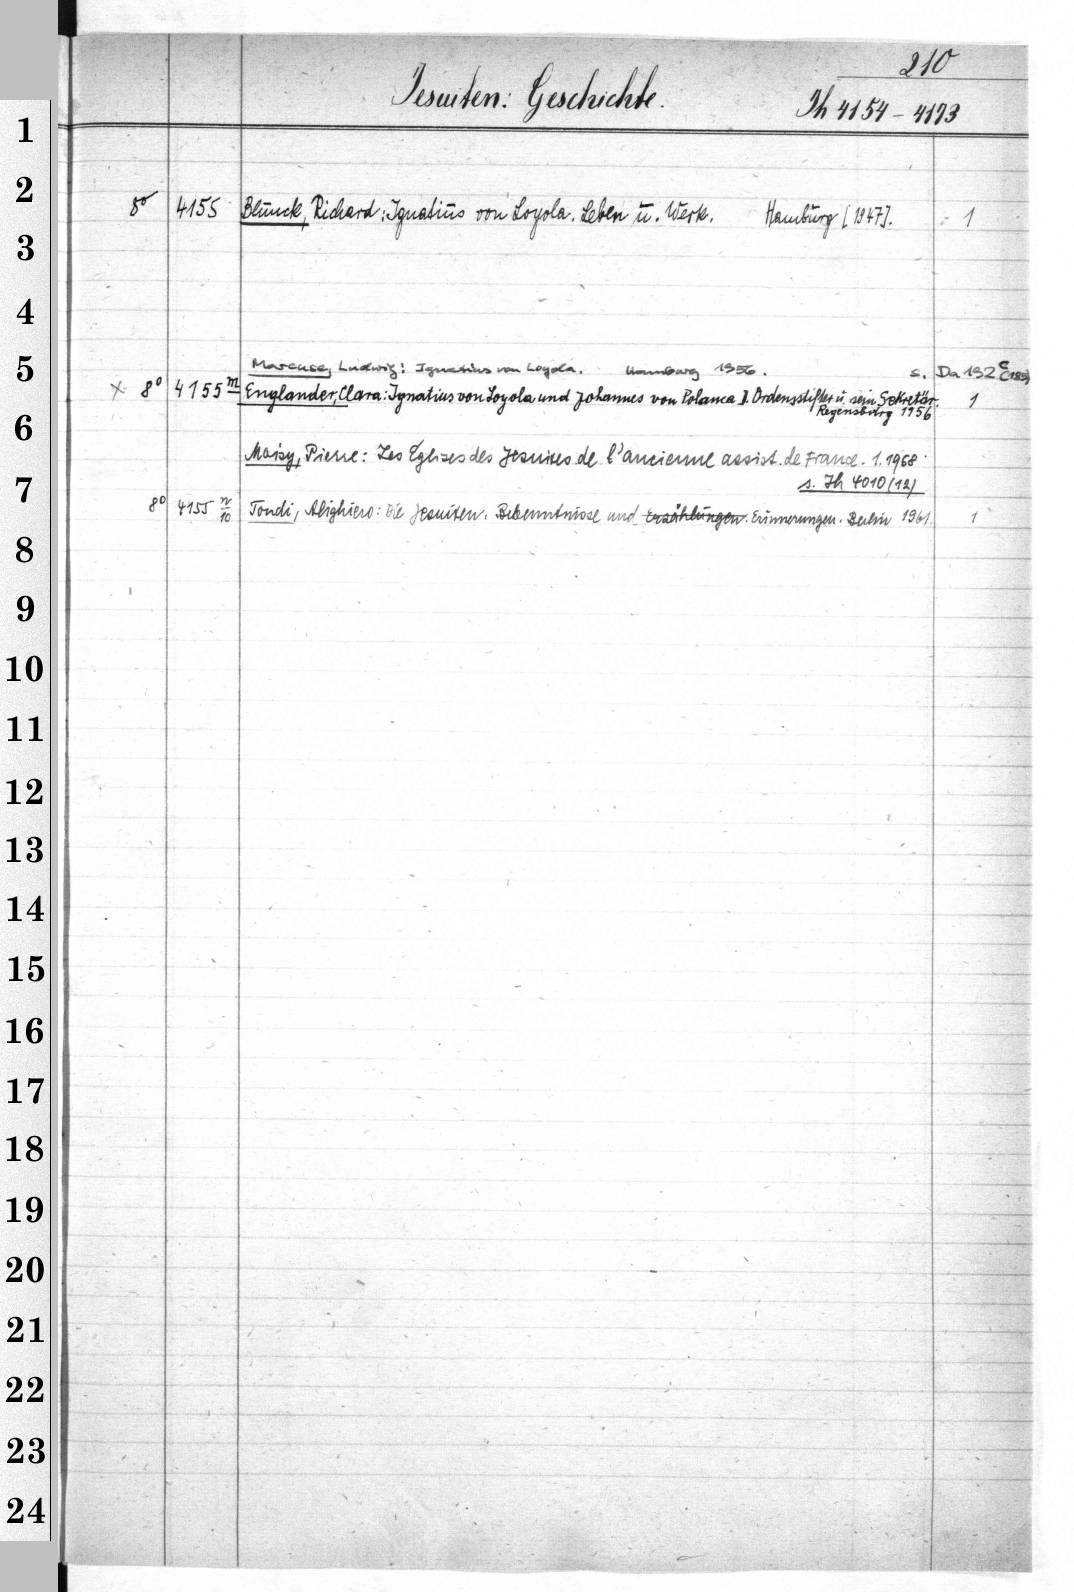 210
Jesuiten: Geschichte.
Th 4154 - 4173
1
2
8° 4155 Blunck, Richard: Ignatius von Loyola. Leben u. Werk. Hamburg [1947]. 1
3
4
5
Marcuse, Ludwig: Ignatius von Loyola. Hamburg 1956. s. Da 192
x 8° 4155 m Englander, Clara: Ignatius von Loyola und Johannes von Polanco. D. Ordensstifter u. sein Sekretär. 1
Regensburg 1956
6
Moisy, Pierre: Les Églises des Jésuites de l'ancienne assist. de France. 1. 1968
s. Th 4010 (12)
7
8° 4155 n/10 Tondi, Alighiero: Die Jesuiten. Bekenntnisse und Erzählungen Erinnerungen. Berlin 1961. 1
8
9
10
11
12
13
14
15
16
17
18
19
20
21
22
23
24